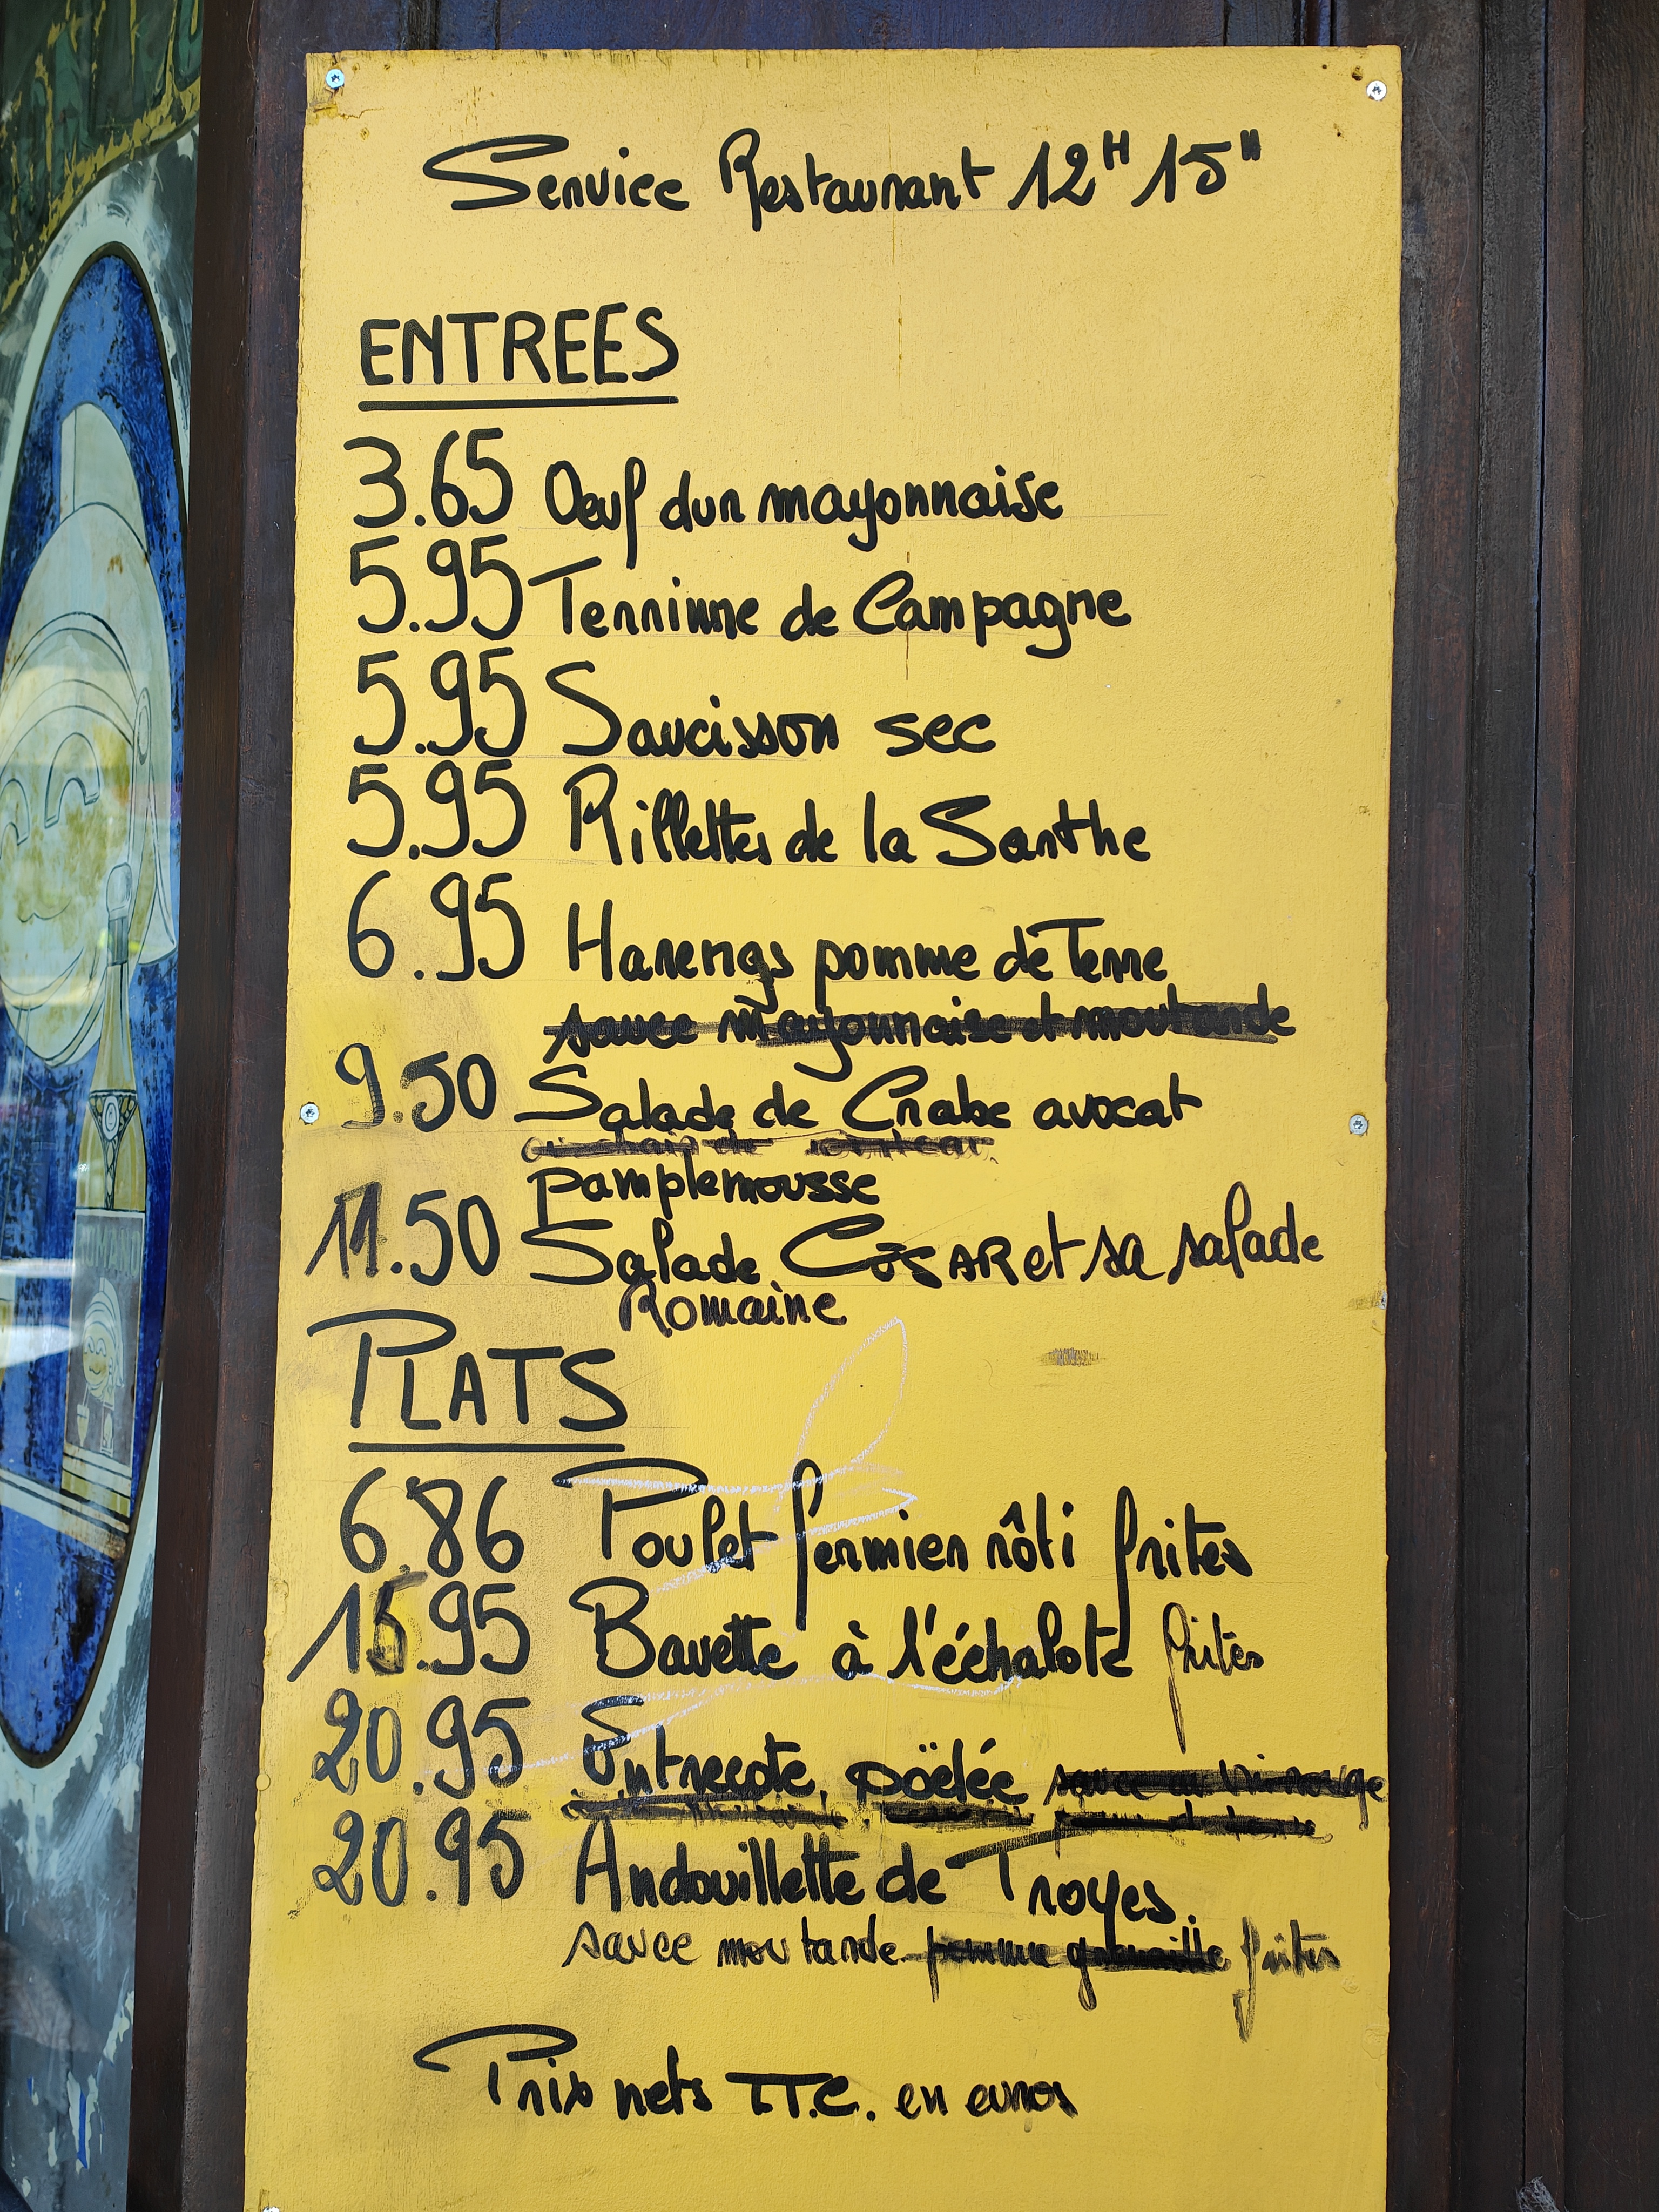 Service Restaurant 12H 15"
ENTREES
3.65 Oeuf dur mayonnaise
5.95 Terrinne de Campagne
5.95 Saucisson sec
5.95 Rillettes de la Sarthe
6.95 Harengs pomme de Terre
sauce mayonnaise et moutarde
9.50 Salade de Crabe avocat
pamplemousse
11.50 Salade CESAR et sa salade
Romaine
PLATS
6.86 Poulet fermier rôti frites
15.95 Bavette à l'échalote frites
20.95 Entrecote poëlée sauce au vin rouge
20.95 Andouillette de Troyes.
sauce moutarde pomme grenaille frites
Prix nets TT.C. en euros